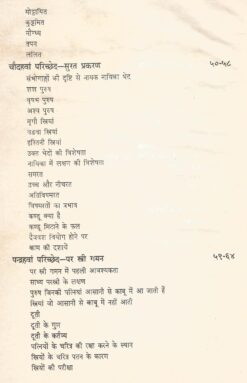 मोट्टायित
कुट्टमित
मौग्ध्य
तपन
ललित
चौदहवां परिच्छेद—सुरत प्रकरण ५०-५८
संभोगाङ्गों की दृष्टि से नायक नायिका भेद
शश पुरुष
वृषभ पुरुष
अश्व पुरुष
मृगी स्त्रियां
वडवा स्त्रियां
हस्तिनी स्त्रियां
उक्त भेदों की विशेषता
नायिका में लक्षण की विशेषता
समरत
उच्च और नीचरत
अतिविषमरत
विषमरतों का प्रभाव
कण्डू क्या है
कण्डू मिटाने के फल
दैववश वियोग होने पर
काम की दशायें
पन्द्रहवां परिच्छेद—पर स्त्री गमन ५९-६४
पर स्त्री गमन में पहली आवश्यकता
साध्य परस्त्री के लक्षण
पुरुष जिनकी पत्नियां आसानी से काबू में आ जाती हैं
स्त्रियां जो आसानी से काबू में नहीं आतीं
दूती
दूती के गुण
दूती के कर्तव्य
पत्नियों के चरित्र की रक्षा करने के स्थान
स्त्रियों के चरित्र पतन के कारण
स्त्रियों की परीक्षा